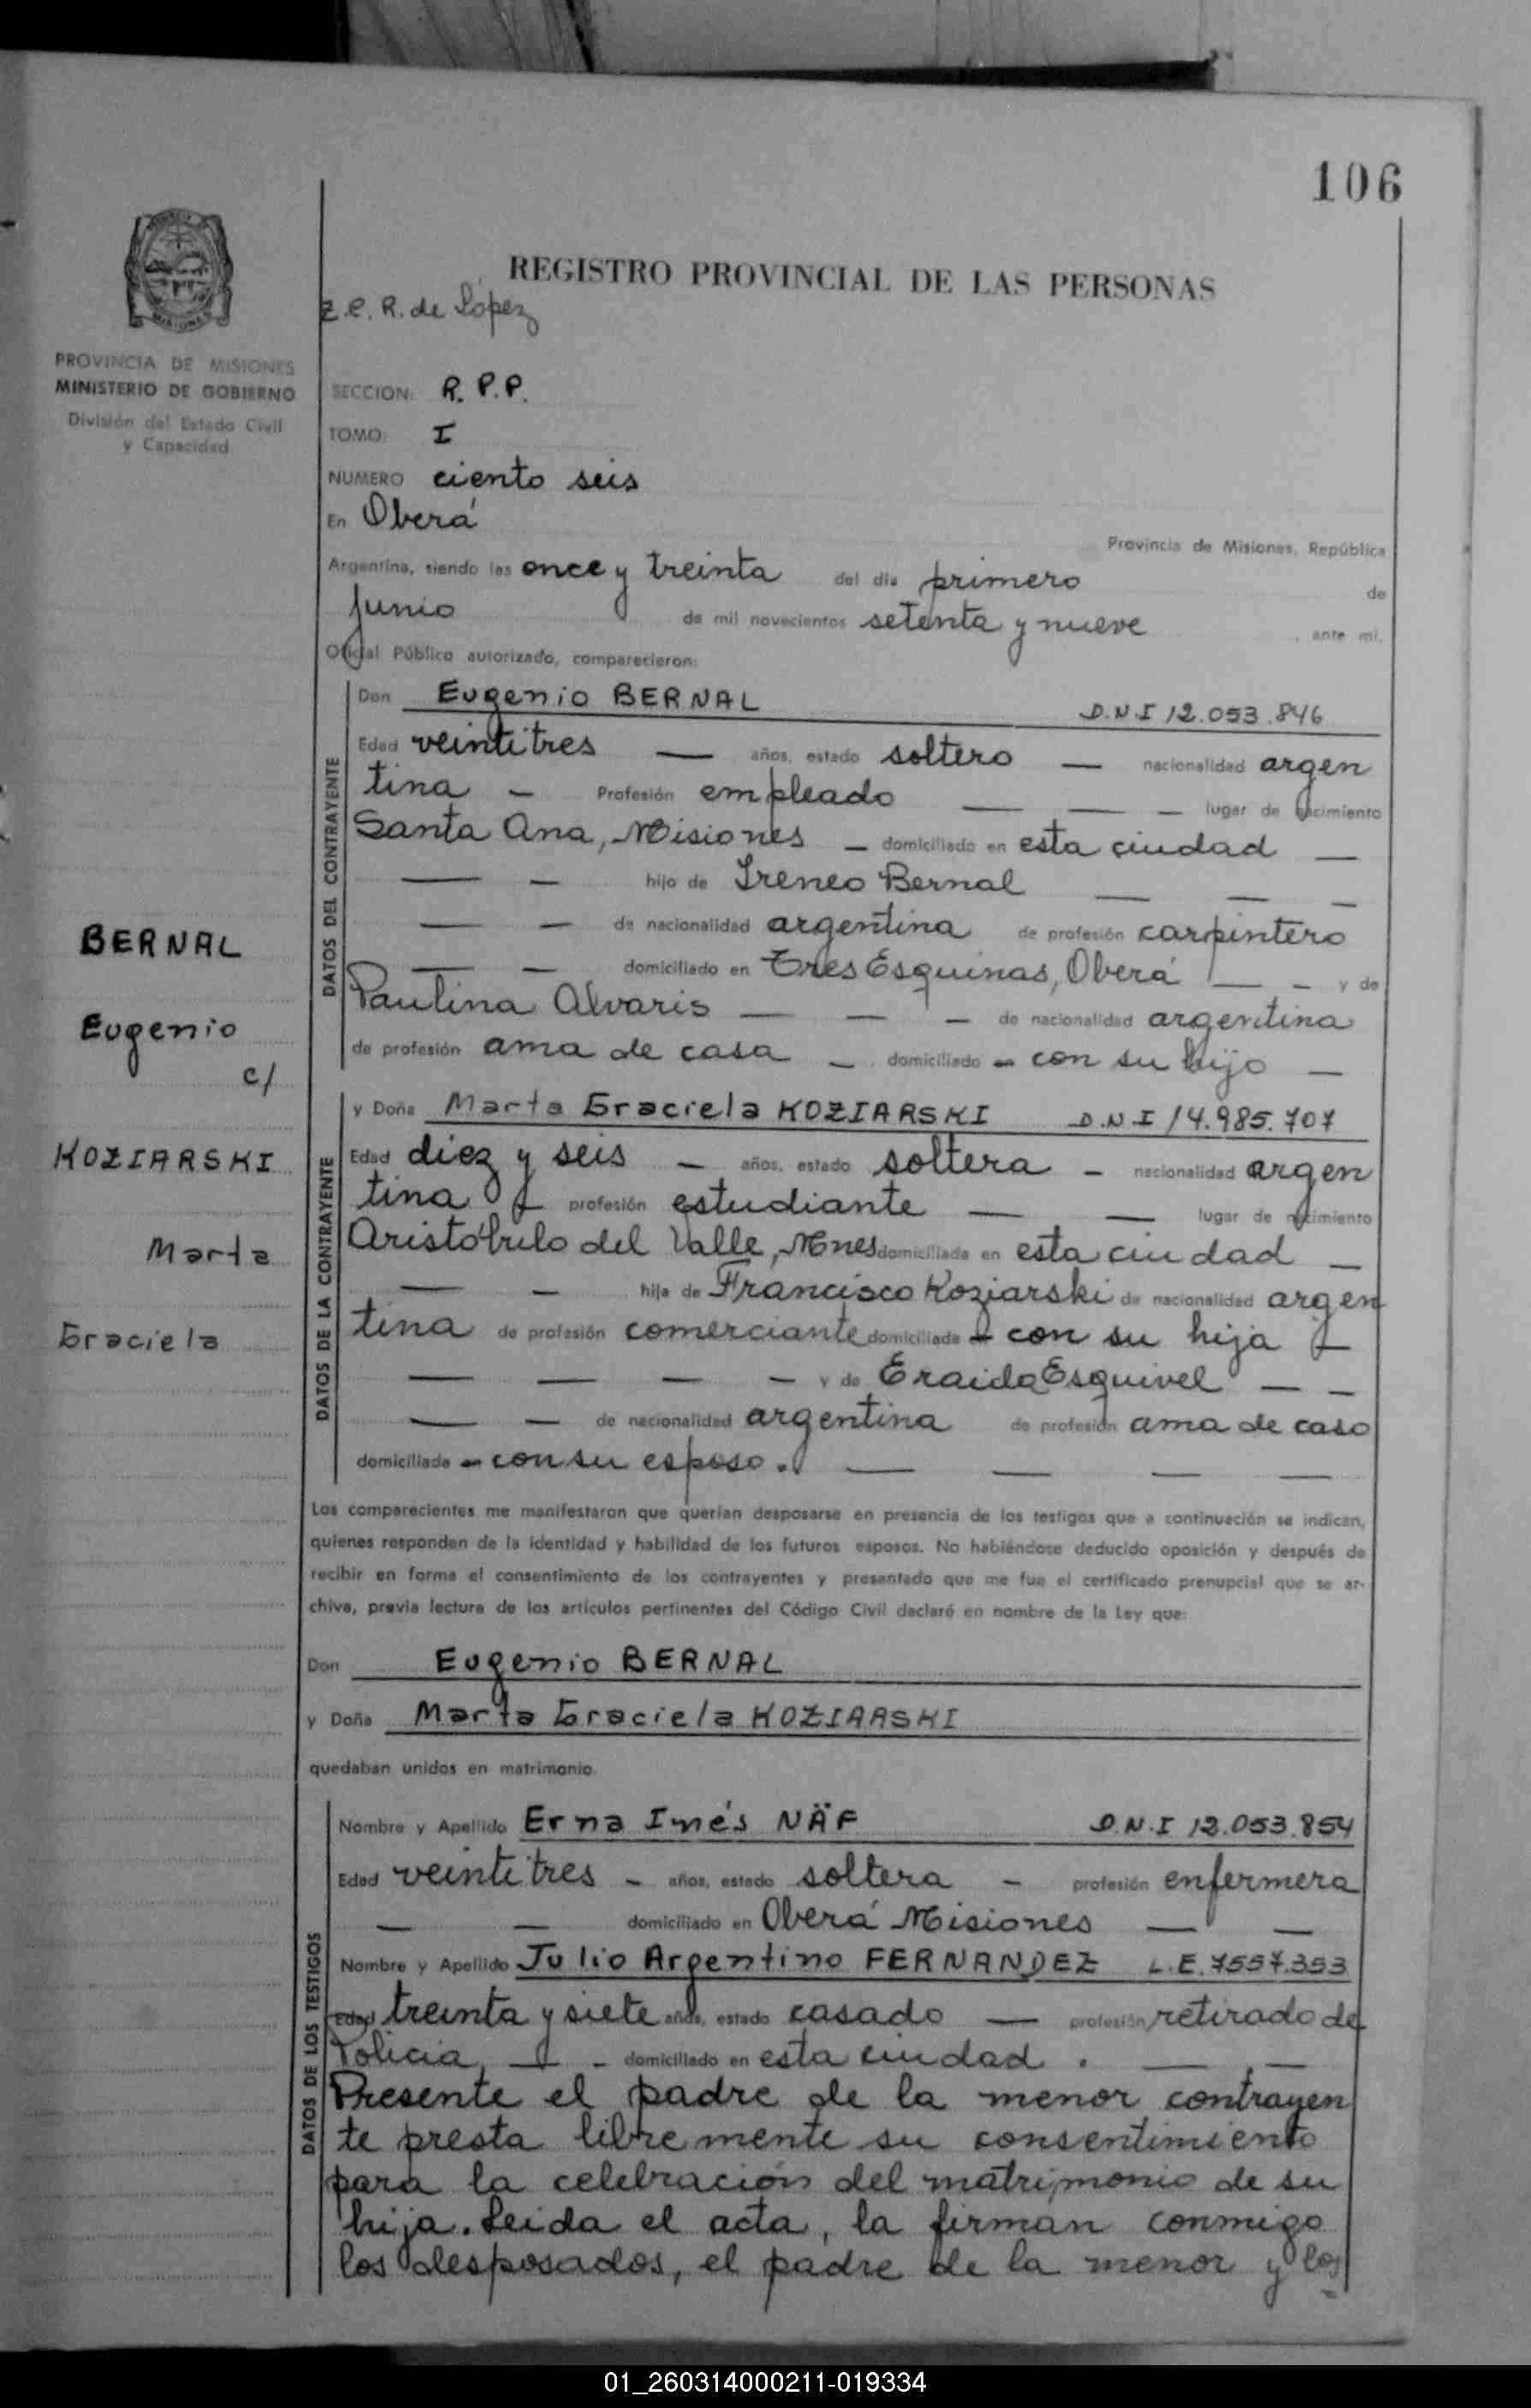 106
REGISTRO PROVINCIAL DE LAS PERSONAS
Z.C.R. de López
PROVINCIA DE MISIONES
MINISTERIO DE GOBIERNO
División del Estado Civil
y Capacidad
SECCION: R.P.P.
TOMO: I
NUMERO ciento seis
En Oberá
Provincia de Misiones, República
Argentina, siendo las once y treinta del día primero de
Junio de mil novecientos setenta y nueve, ante mi,
Oficial Público autorizado, comparecieron:
DATOS DEL CONTRAYENTE
Don Eugenio BERNAL D.N.I 12.053.846
Edad veintitres — años, estado soltero — nacionalidad argen
tina — Profesión empleado — — — lugar de nacimiento
Santa Ana, Misiones — domiciliado en esta ciudad —
— — hijo de Ireneo Bernal — — —
— — de nacionalidad argentina de profesión carpintero
— — domiciliado en Tres Esquinas, Oberá — — y de
Paulina Alvaris — — — de nacionalidad argentina
de profesión ama de casa — domiciliado — con su hijo —
BERNAL
Eugenio
c/
KOZIARSKI
Marta
Graciela
DATOS DE LA CONTRAYENTE
y Doña Marta Graciela KOZIARSKI D.N.I 14.985.707
Edad diez y seis — años, estado soltera — nacionalidad argen
tina — profesión estudiante — — lugar de nacimiento
Aristóbulo del Valle, Mnes domiciliada en esta ciudad —
— — hija de Francisco Koziarski de nacionalidad argen
tina de profesión comerciante domiciliado — con su hija —
— — — — y de Eraida Esquivel — —
— — de nacionalidad argentina de profesión ama de casa
domiciliada — con su esposo. — — — —
Los comparecientes me manifestaron que querían desposarse en presencia de los testigos que a continuación se indican,
quienes responden de la identidad y habilidad de los futuros esposos. No habiéndose deducido oposición y después de
recibir en forma el consentimiento de los contrayentes y presentado que me fue el certificado prenupcial que se ar-
chiva, previa lectura de los artículos pertinentes del Código Civil declaré en nombre de la Ley que:
Don Eugenio BERNAL
y Doña Marta Graciela KOZIARSKI
quedaban unidos en matrimonio.
DATOS DE LOS TESTIGOS
Nombre y Apellido Erna Inés NÄF D.N.I 12.053.854
Edad veintitres — años, estado soltera — profesión enfermera
— — domiciliado en Oberá Misiones — —
Nombre y Apellido Julio Argentino FERNANDEZ L.E. 7557.353
Edad treinta y siete años, estado casado — profesión retirado de
Policia, — — domiciliado en esta ciudad. — —
Presente el padre de la menor contrayen
te presta libremente su consentimiento
para la celebración del matrimonio de su
hija. Leida el acta, la firman conmigo
los desposados, el padre de la menor y los
01_260314000211-019334